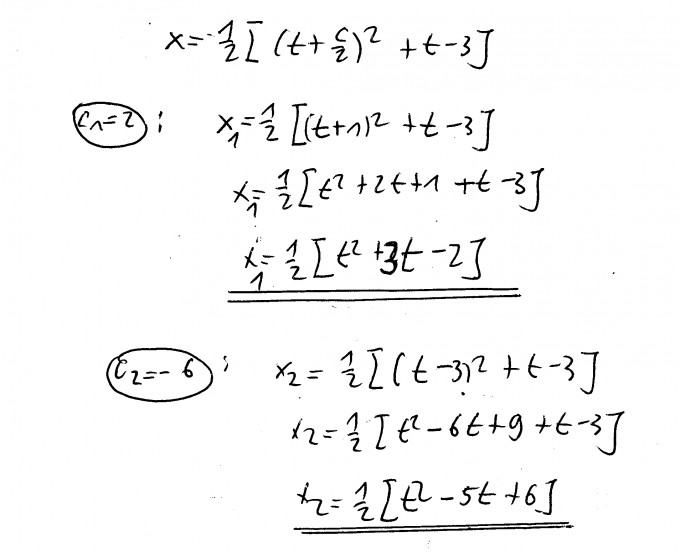 x = 1/2 [ (t + c/2)² + t - 3 ]
C₁ = 2 : x₁ = 1/2 [ (t+1)² + t - 3 ]
x₁ = 1/2 [ t² + 2t + 1 + t - 3 ]
x₁ = 1/2 [ t² + 3t - 2 ]
C₂ = - 6 : x₂ = 1/2 [ (t - 3)² + t - 3 ]
x₂ = 1/2 [ t² - 6t + 9 + t - 3 ]
x₂ = 1/2 [ t² - 5t + 6 ]